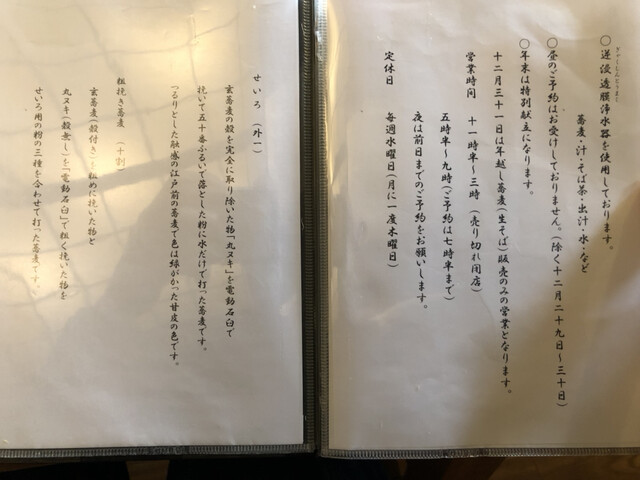 ぎゃくしんとうまく
〇逆浸透膜浄水器を使用しております。
蕎麦・汁・そば茶・出汁・水・など
〇昼のご予約はお受けしておりません。(除く十二月二十九日～三十日)
〇年末は特別献立になります。
十二月三十一日は年越し蕎麦(生そば)販売のみの営業となります。
営業時間 十一時半～三時 (売り切れ閉店)
五時半～九時(ご予約は七時半まで)
夜は前日までのご予約をお願いします。
定休日 毎週水曜日(月に一度木曜日)
せいろ (外一)
玄蕎麦の殻を完全に取り除いた物「丸ヌキ」を電動石臼で
挽いて五十番ふるいで落とした粉に水だけで打った蕎麦です。
つるりとした触感の江戸前の蕎麦で色は緑がかった甘皮の色です。
粗挽き蕎麦 (十割)
玄蕎麦(殻付き)を粗めに挽いた物と
丸ヌキ(殻無し)を「電動石臼」で粗く挽いた物を
せいろ用の粉の三種を合わせて打った蕎麦です。